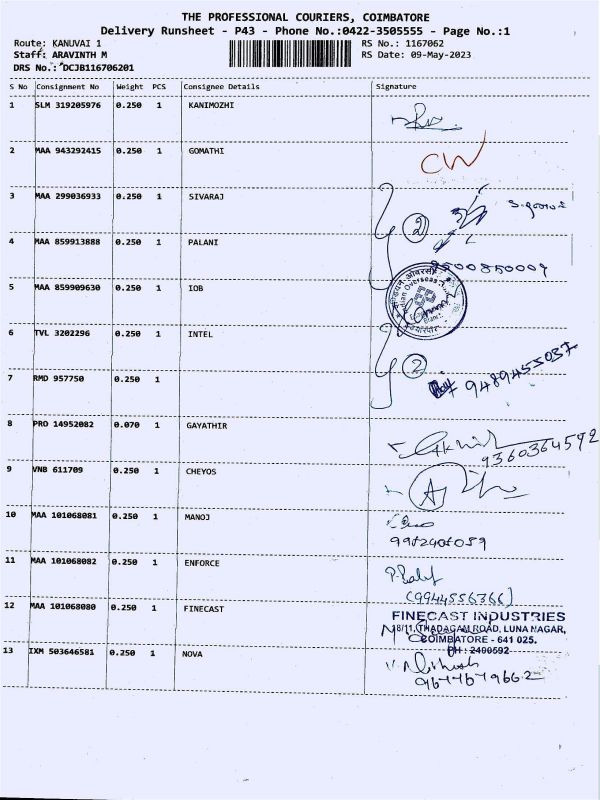 THE PROFESSIONAL COURIERS, COIMBATORE
Delivery Runsheet - P43 - Phone No.:0422-3505555 - Page No.:1
Route: KANUVAI 1 RS No.: 1167062
Staff: ARAVINTH M RS Date: 09-May-2023
DRS No.: DCJB116706201
S No Consignment No Weight PCS Consignee Details Signature
1 SLM 319205976 0.250 1 KANIMOZHI
2 MAA 943292415 0.250 1 GOMATHI
CW
3 MAA 299036933 0.250 1 SIVARAJ
2
4 MAA 859913888 0.250 1 PALANI
9500850009
5 MAA 859909630 0.250 1 IOB
6 TVL 3202296 0.250 1 INTEL
2
7 RMD 957750 0.250 1
9489455037
8 PRO 14952082 0.070 1 GAYATHIR
9360364592
9 VNB 611709 0.250 1 CHEYOS
10 MAA 101068081 0.250 1 MANOJ
11 MAA 101068082 0.250 1 ENFORCE
(9944556366)
12 MAA 101068080 0.250 1 FINECAST
FINECAST INDUSTRIES
8/11, THADAGAM ROAD, LUNA NAGAR,
COIMBATORE - 641 025.
PH : 2400592
13 IXM 503646581 0.250 1 NOVA